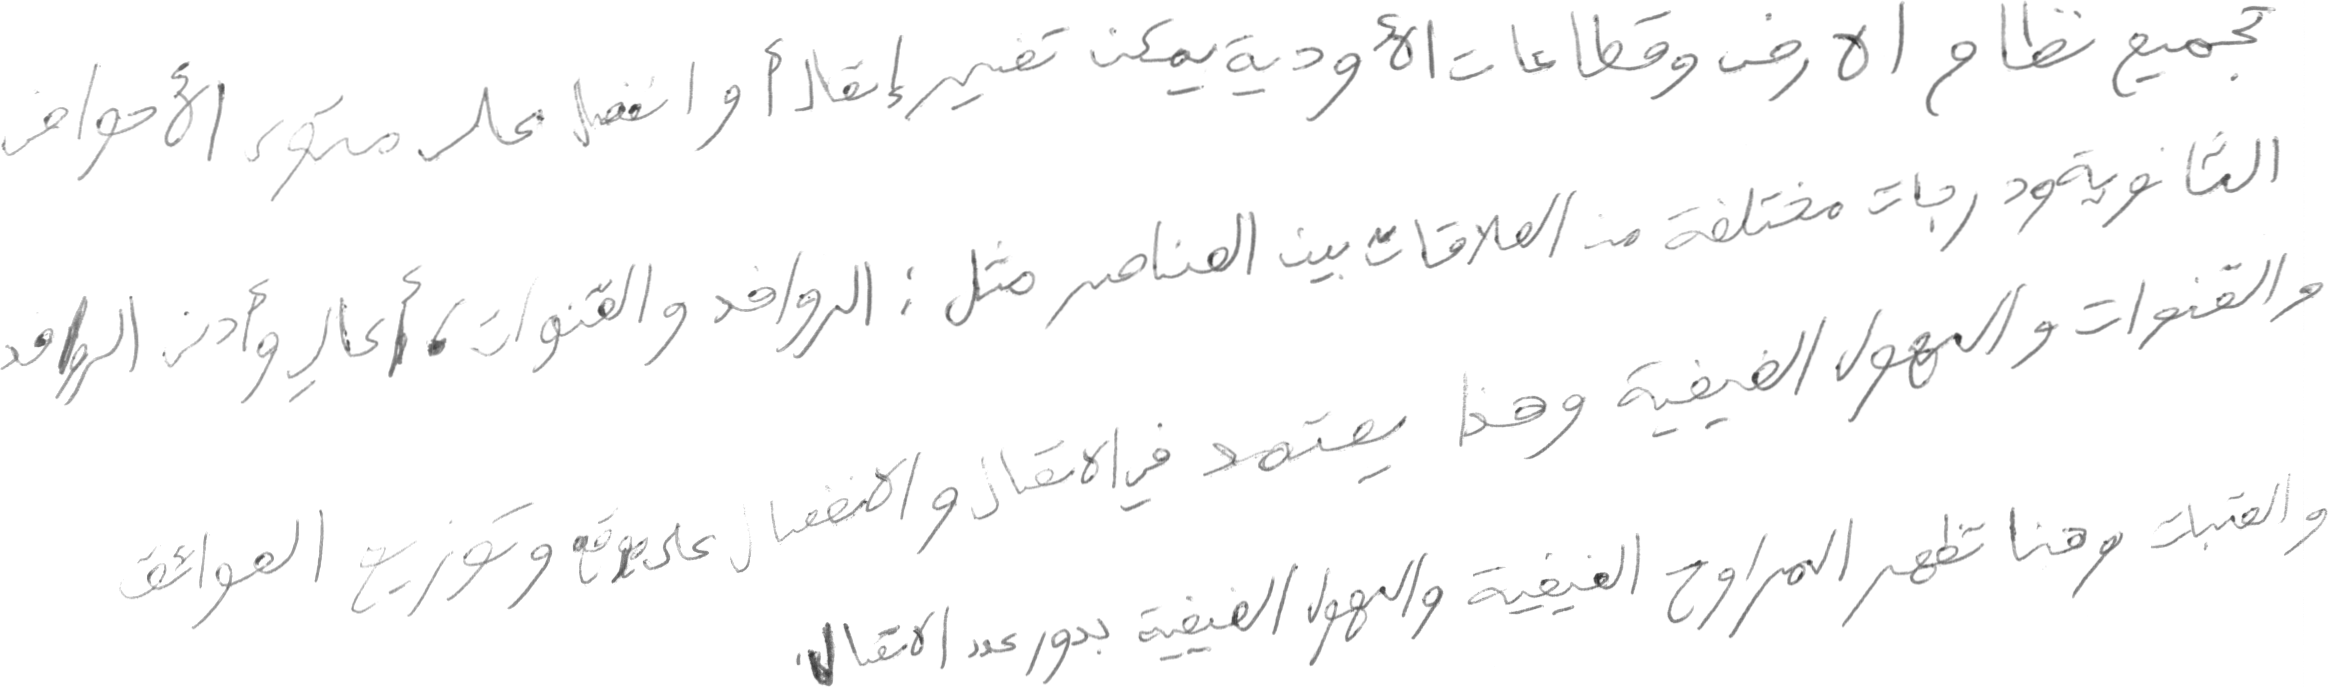 تجميع نظام الارض وقطاعات الأودية يمكن تفسير إتقال أو انفصال على مستوى الأحواض
الثانوية ودرجات مختلفة من العلاقات بين العناصر مثل : الروافد والقنوات، أعالي وأدنى الروافد
والقنوات والسهول الفيضية وهذا يعتمد في الاتصال والانفصال على موقع وتوزيع العوائق
والعتبات وهنا تظهر المراوح الفيضية والسهول الفيضية بدور عدد الاتصال.